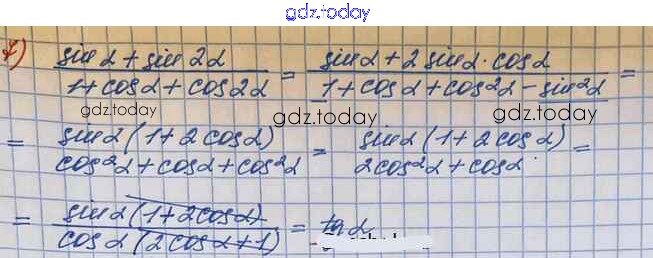 gdz.today
7) (sin α + sin 2α)/(1 + cos α + cos 2α) = (sin α + 2 sin α · cos α)/(1 + cos α + cos²α − sin²α) =
gdz.today gdz.today gdz.today
= (sin α (1 + 2 cos α))/(cos²α + cos α + cos²α) = (sin α (1 + 2 cos α))/(2cos²α + cos α) =
= (sin α (1 + 2cos α))/(cos α (2 cos α + 1)) = tg α